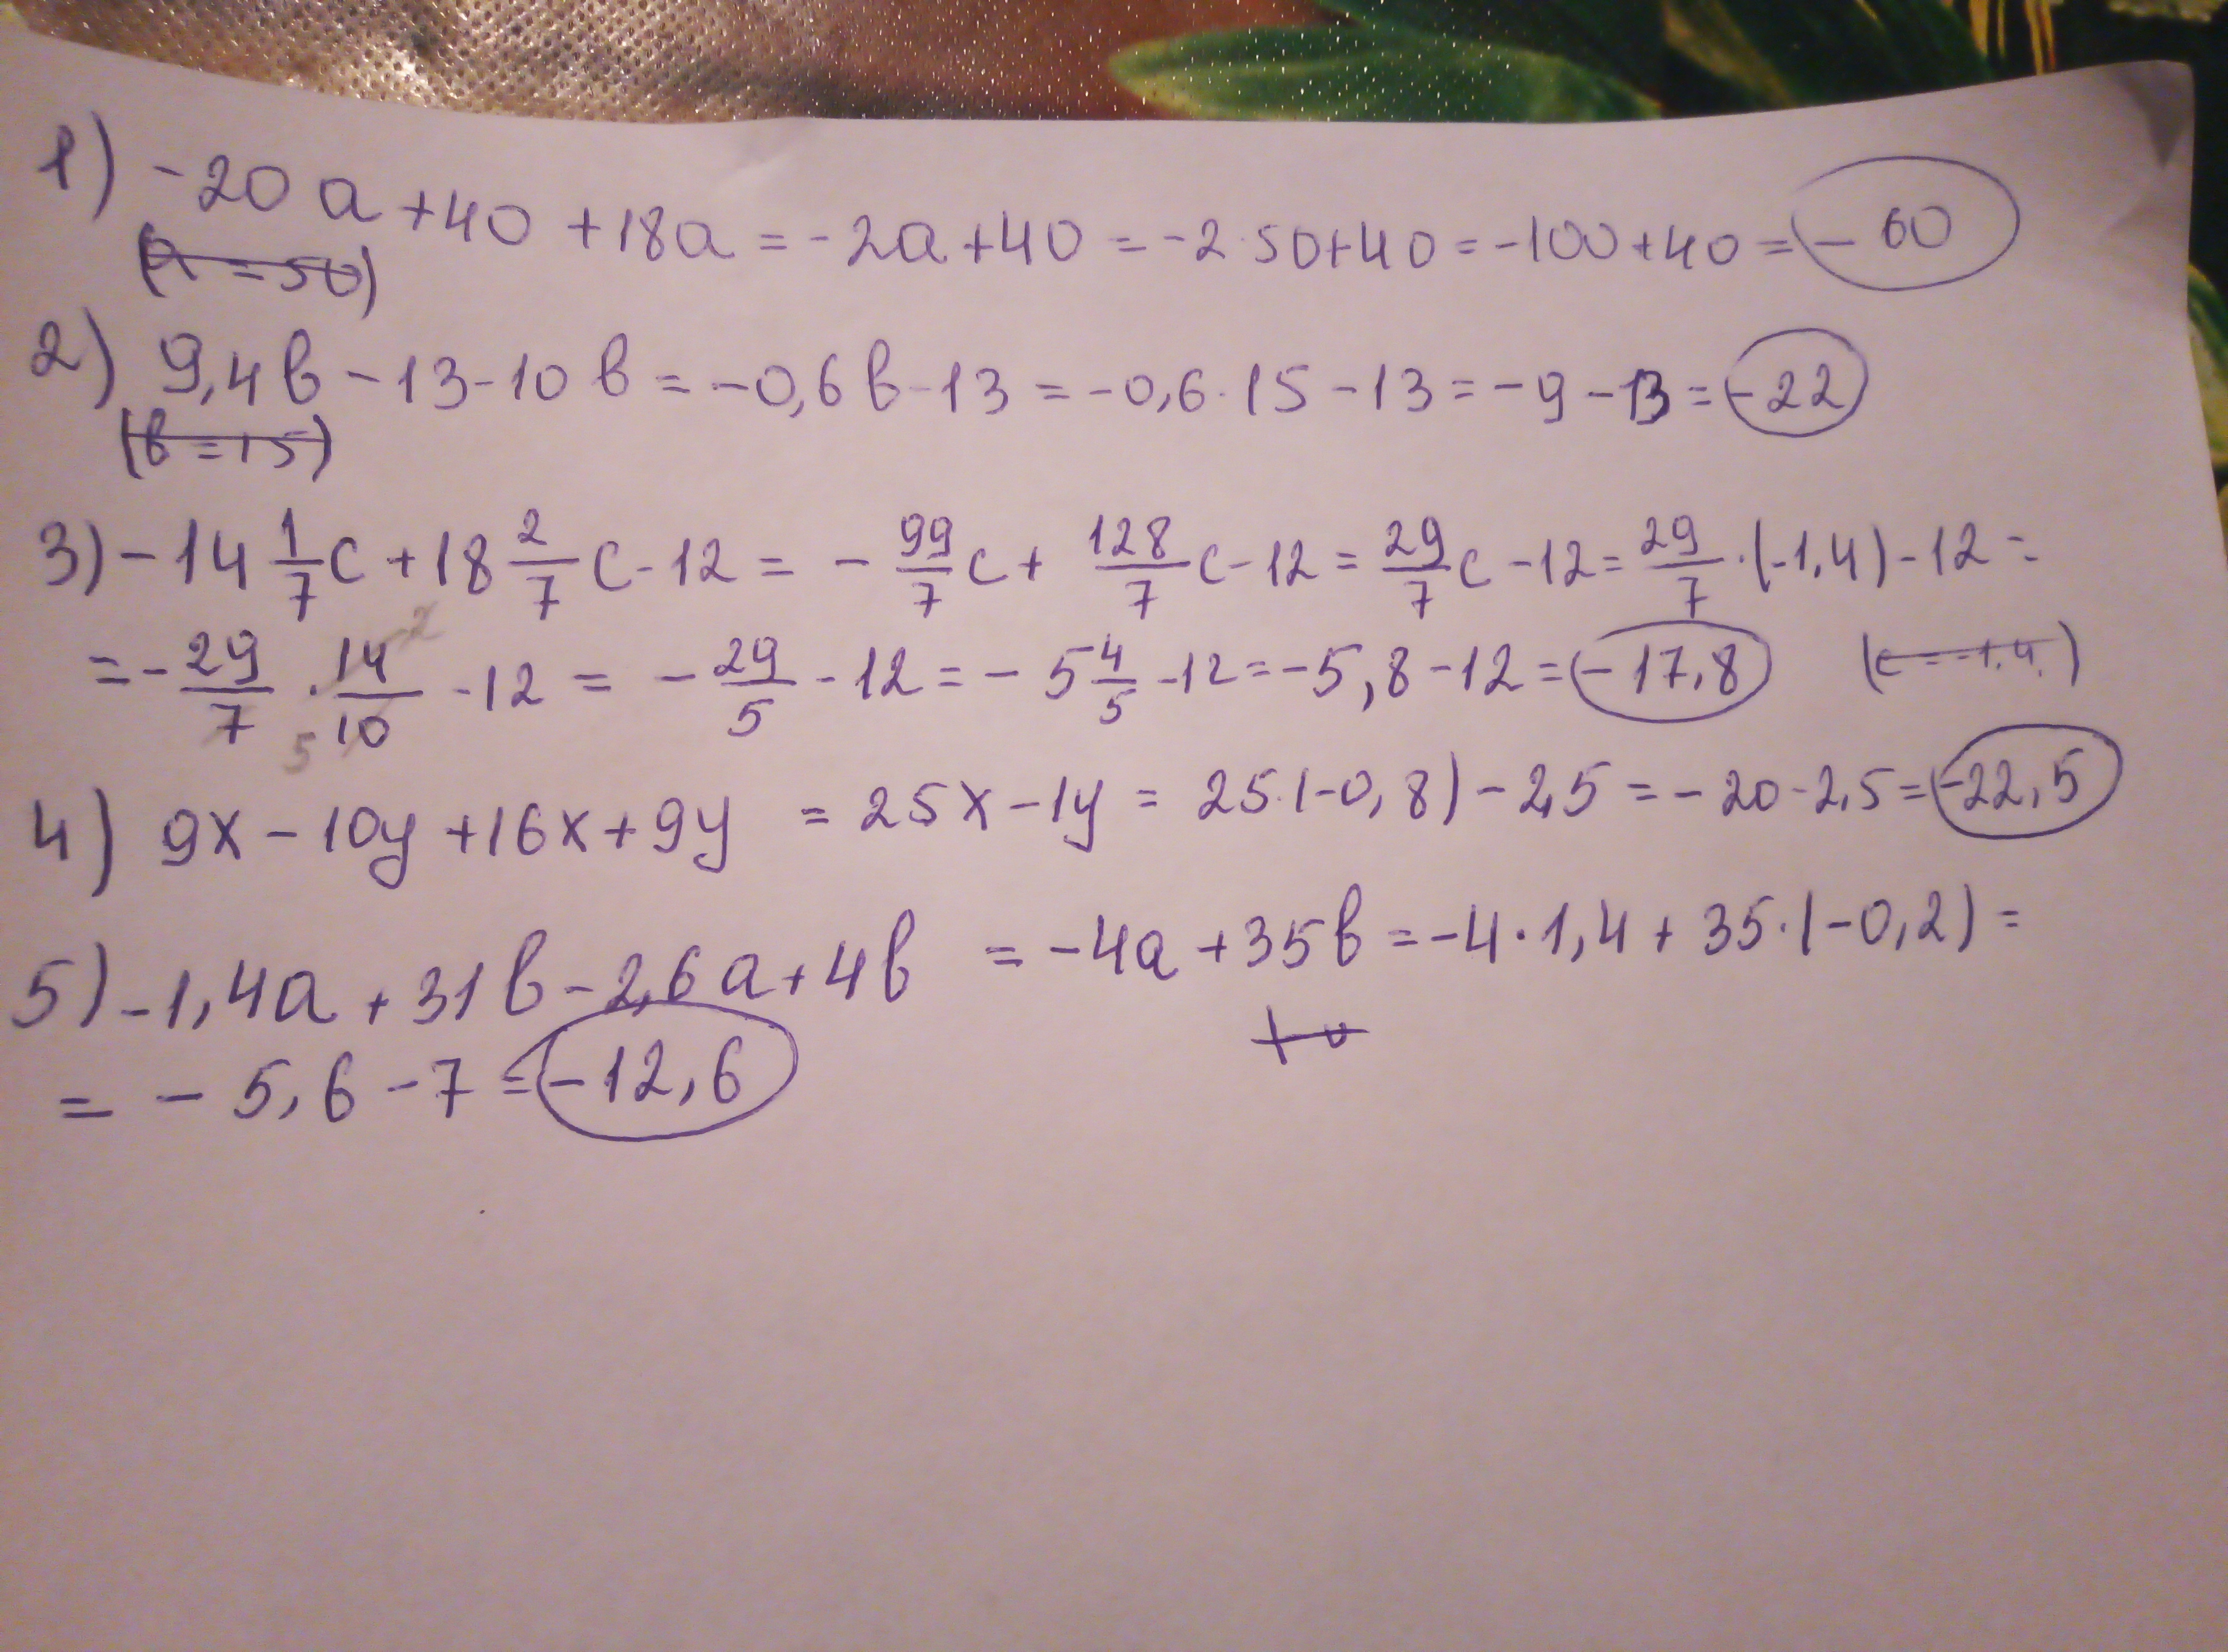 1) -20a +40 +18a = -2a+40 = -2·50+40 = -100+40 = -60
(a=50)
2) 9,4b -13-10b = -0,6b-13 = -0,6·15-13 = -9-13 = -22
(b=15)
3) -14 1/7 c + 18 2/7 c - 12 = - 99/7 c + 128/7 c - 12 = 29/7 c - 12 = 29/7 · (-1,4) - 12 =
= - 29/7 · 14/10 - 12 = - 29/5 - 12 = - 5 4/5 - 12 = -5,8 - 12 = -17,8 (c=-1,4)
2
5
4) 9x - 10y + 16x + 9y = 25x - 1y = 25·(-0,8) - 2,5 = -20 - 2,5 = -22,5
5) -1,4a + 31b - 2,6a + 4b = -4a + 35b = -4·1,4 + 35·(-0,2) =
= - 5,6 - 7 = -12,6